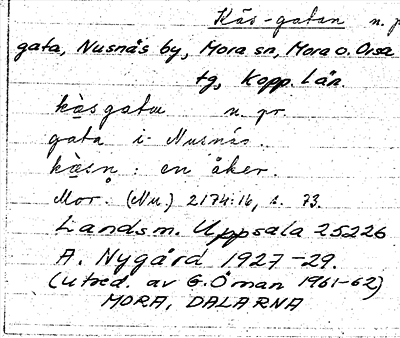 Kås-gatan n. p
gata, Nusnäs by, Mora sn, Mora o. Orsa
tg, Kopp. län.
kåsgatan n. pr.
gata i Nusnäs.
kåsn : en åker.
Mor. (Nu.) 2174:16, s. 73.
Landsm. Uppsala 25226
A. Nygård 1927-29.
(utred. av G. Öman 1961-62)
MORA, DALARNA